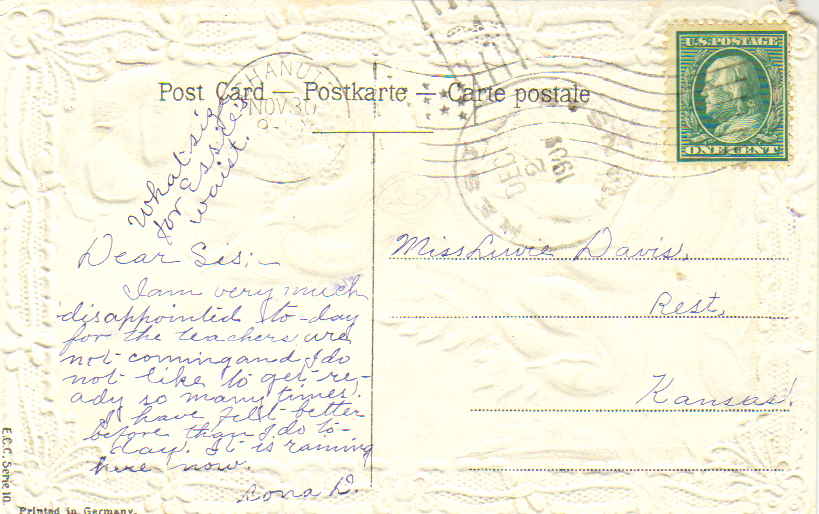 Post Card — Postkarte — Carte postale
CHANUTE
NOV 30
DEC
2
1909
U.S. POSTAGE
ONE CENT
What size
for Essie's
waist.
Dear Sis;—
I am very much
disappointed to-day
for the teachers are
not coming and I do
not like to get re-
ady so many times.
I have felt better
before than I do to-
day. It is raining
here now.
Lona D.
Miss Lusie Davis,
Rest,
Kansas.
E.C.C. Serie 10.
Printed in Germany.